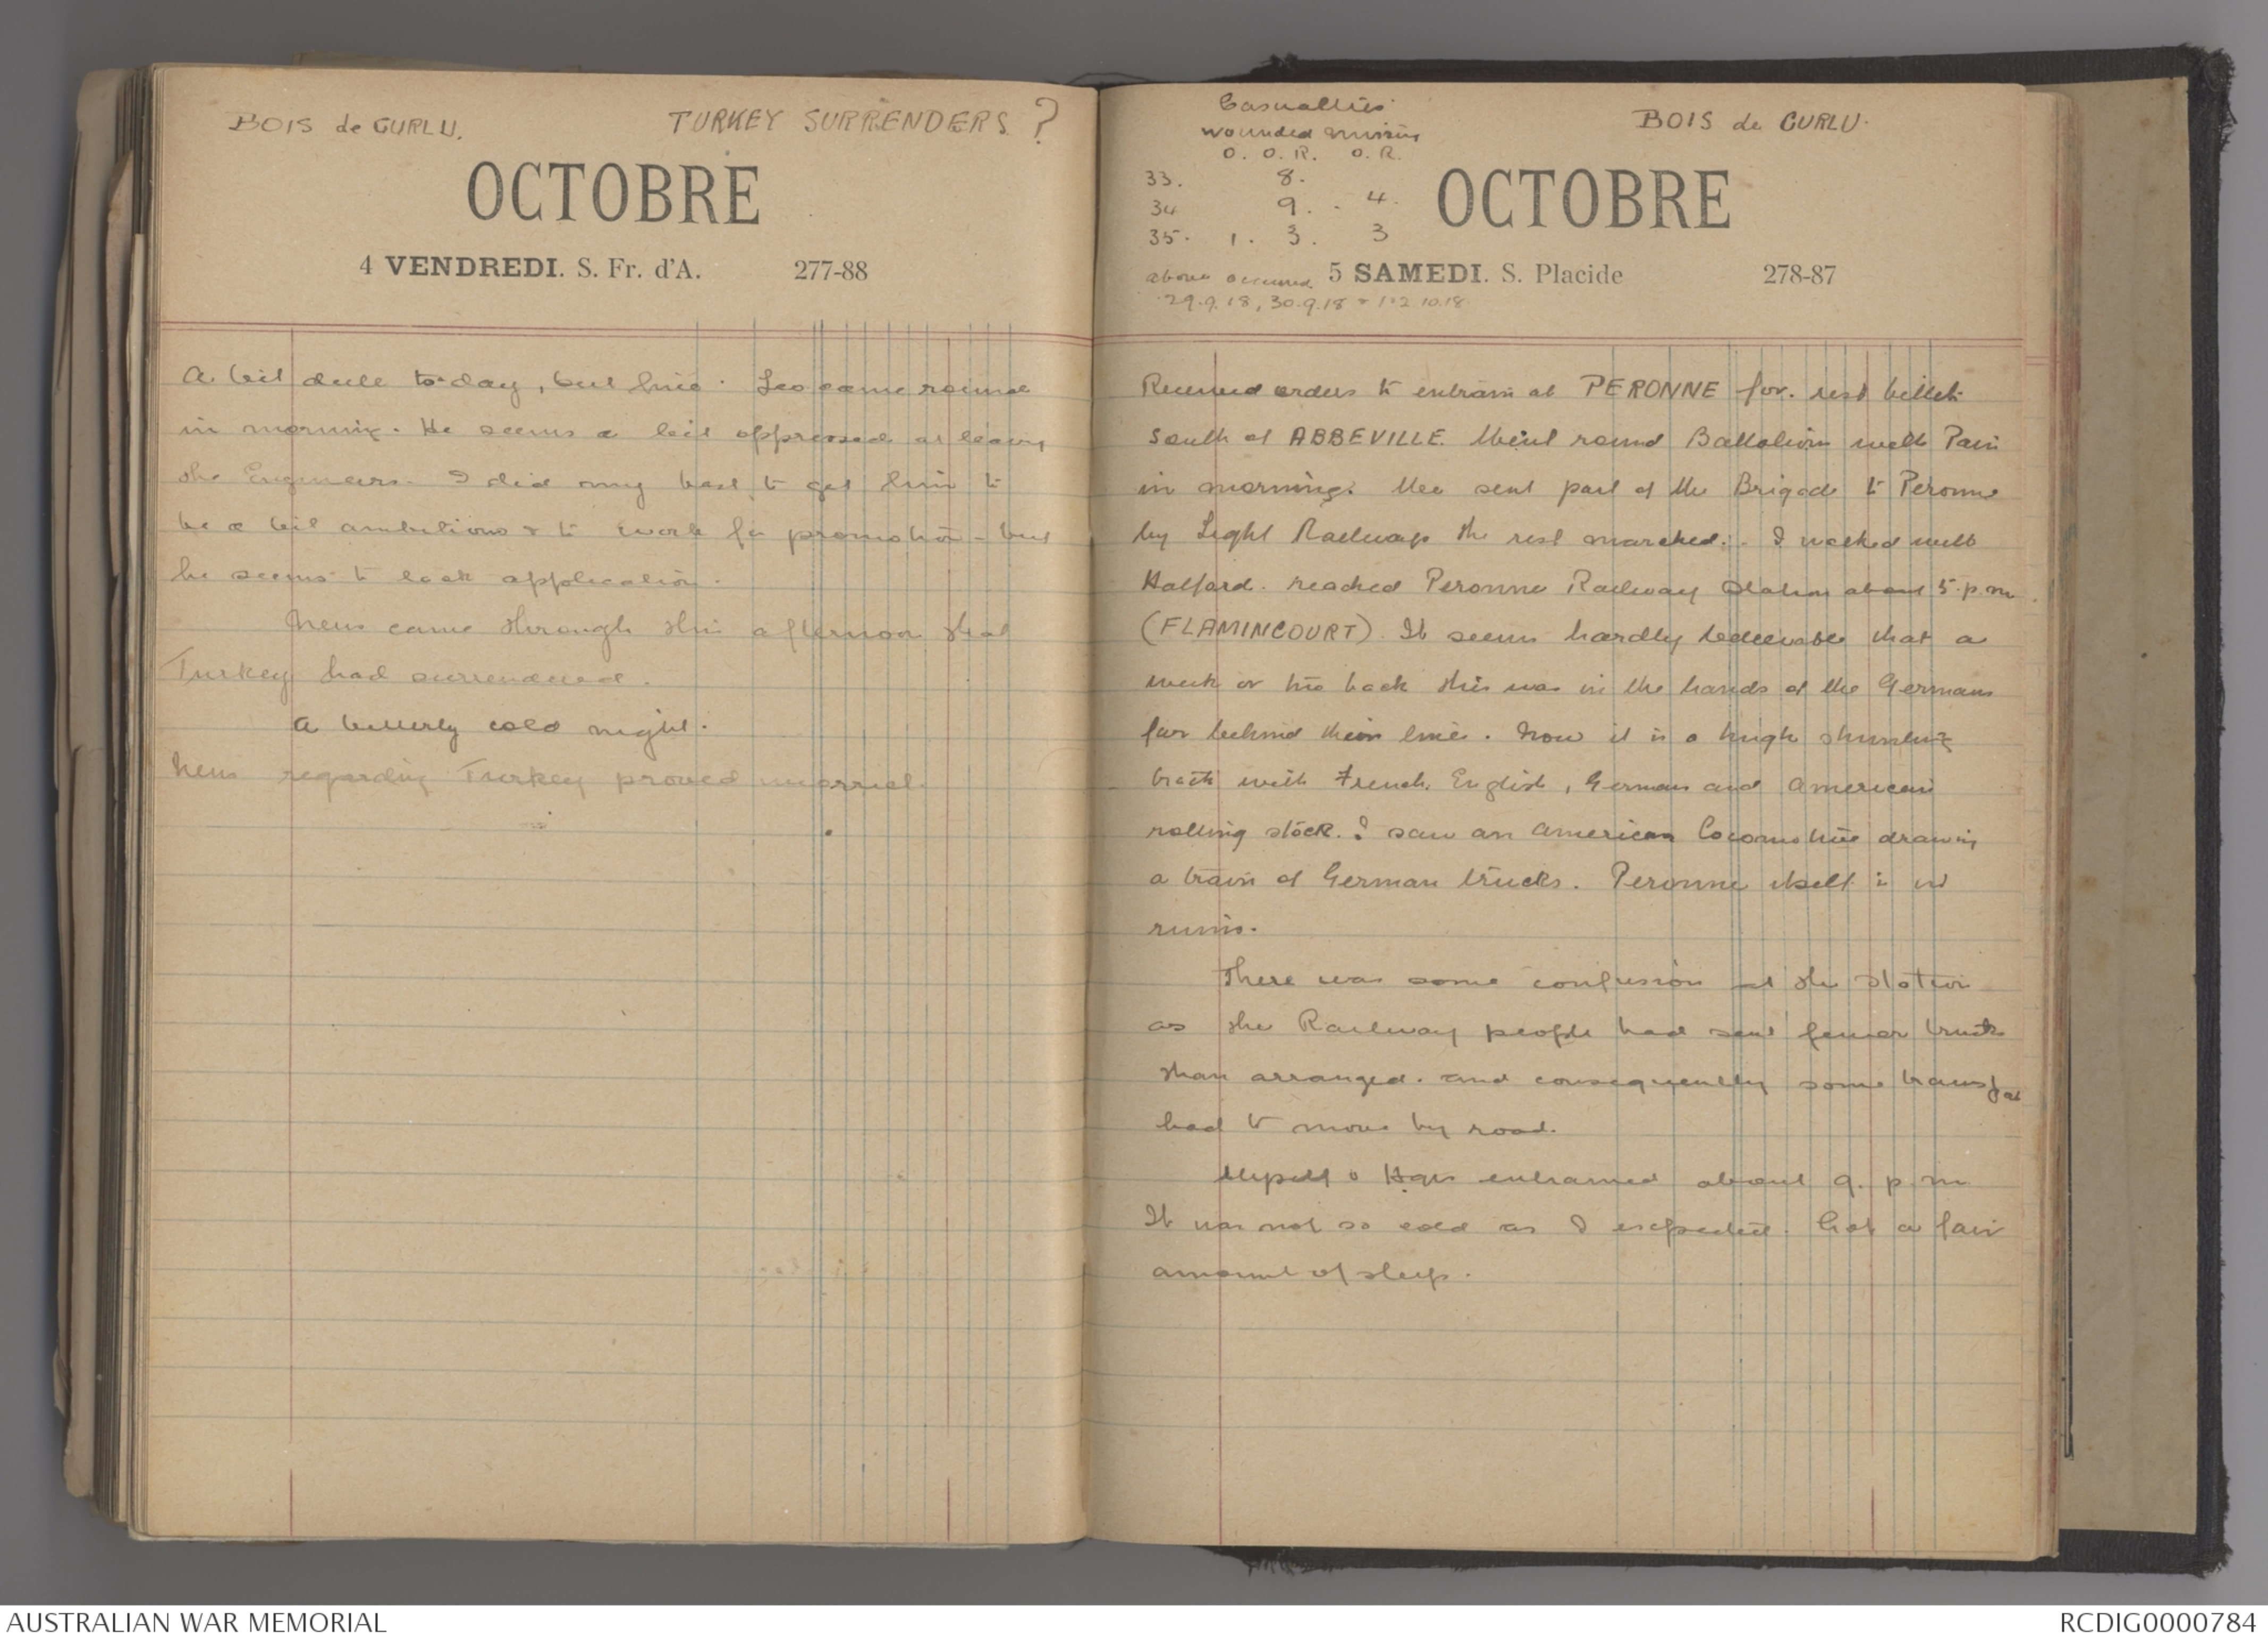 BOIS de CURLU. TURKEY SURRENDERS ?
OCTOBRE
4 VENDREDI. S. Fr. d'A. 277-88
A bit dull to-day, but fine. Leo came round
in morning. He seems a bit oppressed at leaving
the Engineers. I did my best to get him to
be a bit ambitious & to work for promotion - but
he seems to lack application.
News came through this afternoon that
Turkey had surrendered.
A bitterly cold night.
News regarding Turkey proved
Casualties
wounded missing
O. O.R. O.R.
33. 8.
34 9. - 4.
35. 1. 3. 3
above occurred
29.9.18, 30.9.18 & 1-2.10.18
BOIS de CURLU.
OCTOBRE
5 SAMEDI. S. Placide 278-87
Received orders to entrain at PERONNE for rest billets
South of ABBEVILLE. Went round Battalion with Pain
in morning. We sent part of the Brigade to Peronne
by Light Railway the rest marched. I walked with
Halford. reached Peronne Railway Station about 5.p.m.
(FLAMINCOURT). It seems hardly believable that a
week or two back this was in the hands of the Germans
far behind their line. Now it is a hugh shunting
track with French, English, German and American
rolling stock. I saw an American locomotive drawing
a train of German trucks. Peronne itself is in
ruins.
There was some confusion at the station
as the Railway people had sent fewer trucks
than arranged. and consequently some transport
had to move by road.
Myself & Hqrs entrained about 9. p.m
It was not so cold as I expected. Got a fair
amount of sleep.
AUSTRALIAN WAR MEMORIAL RCDIG0000784